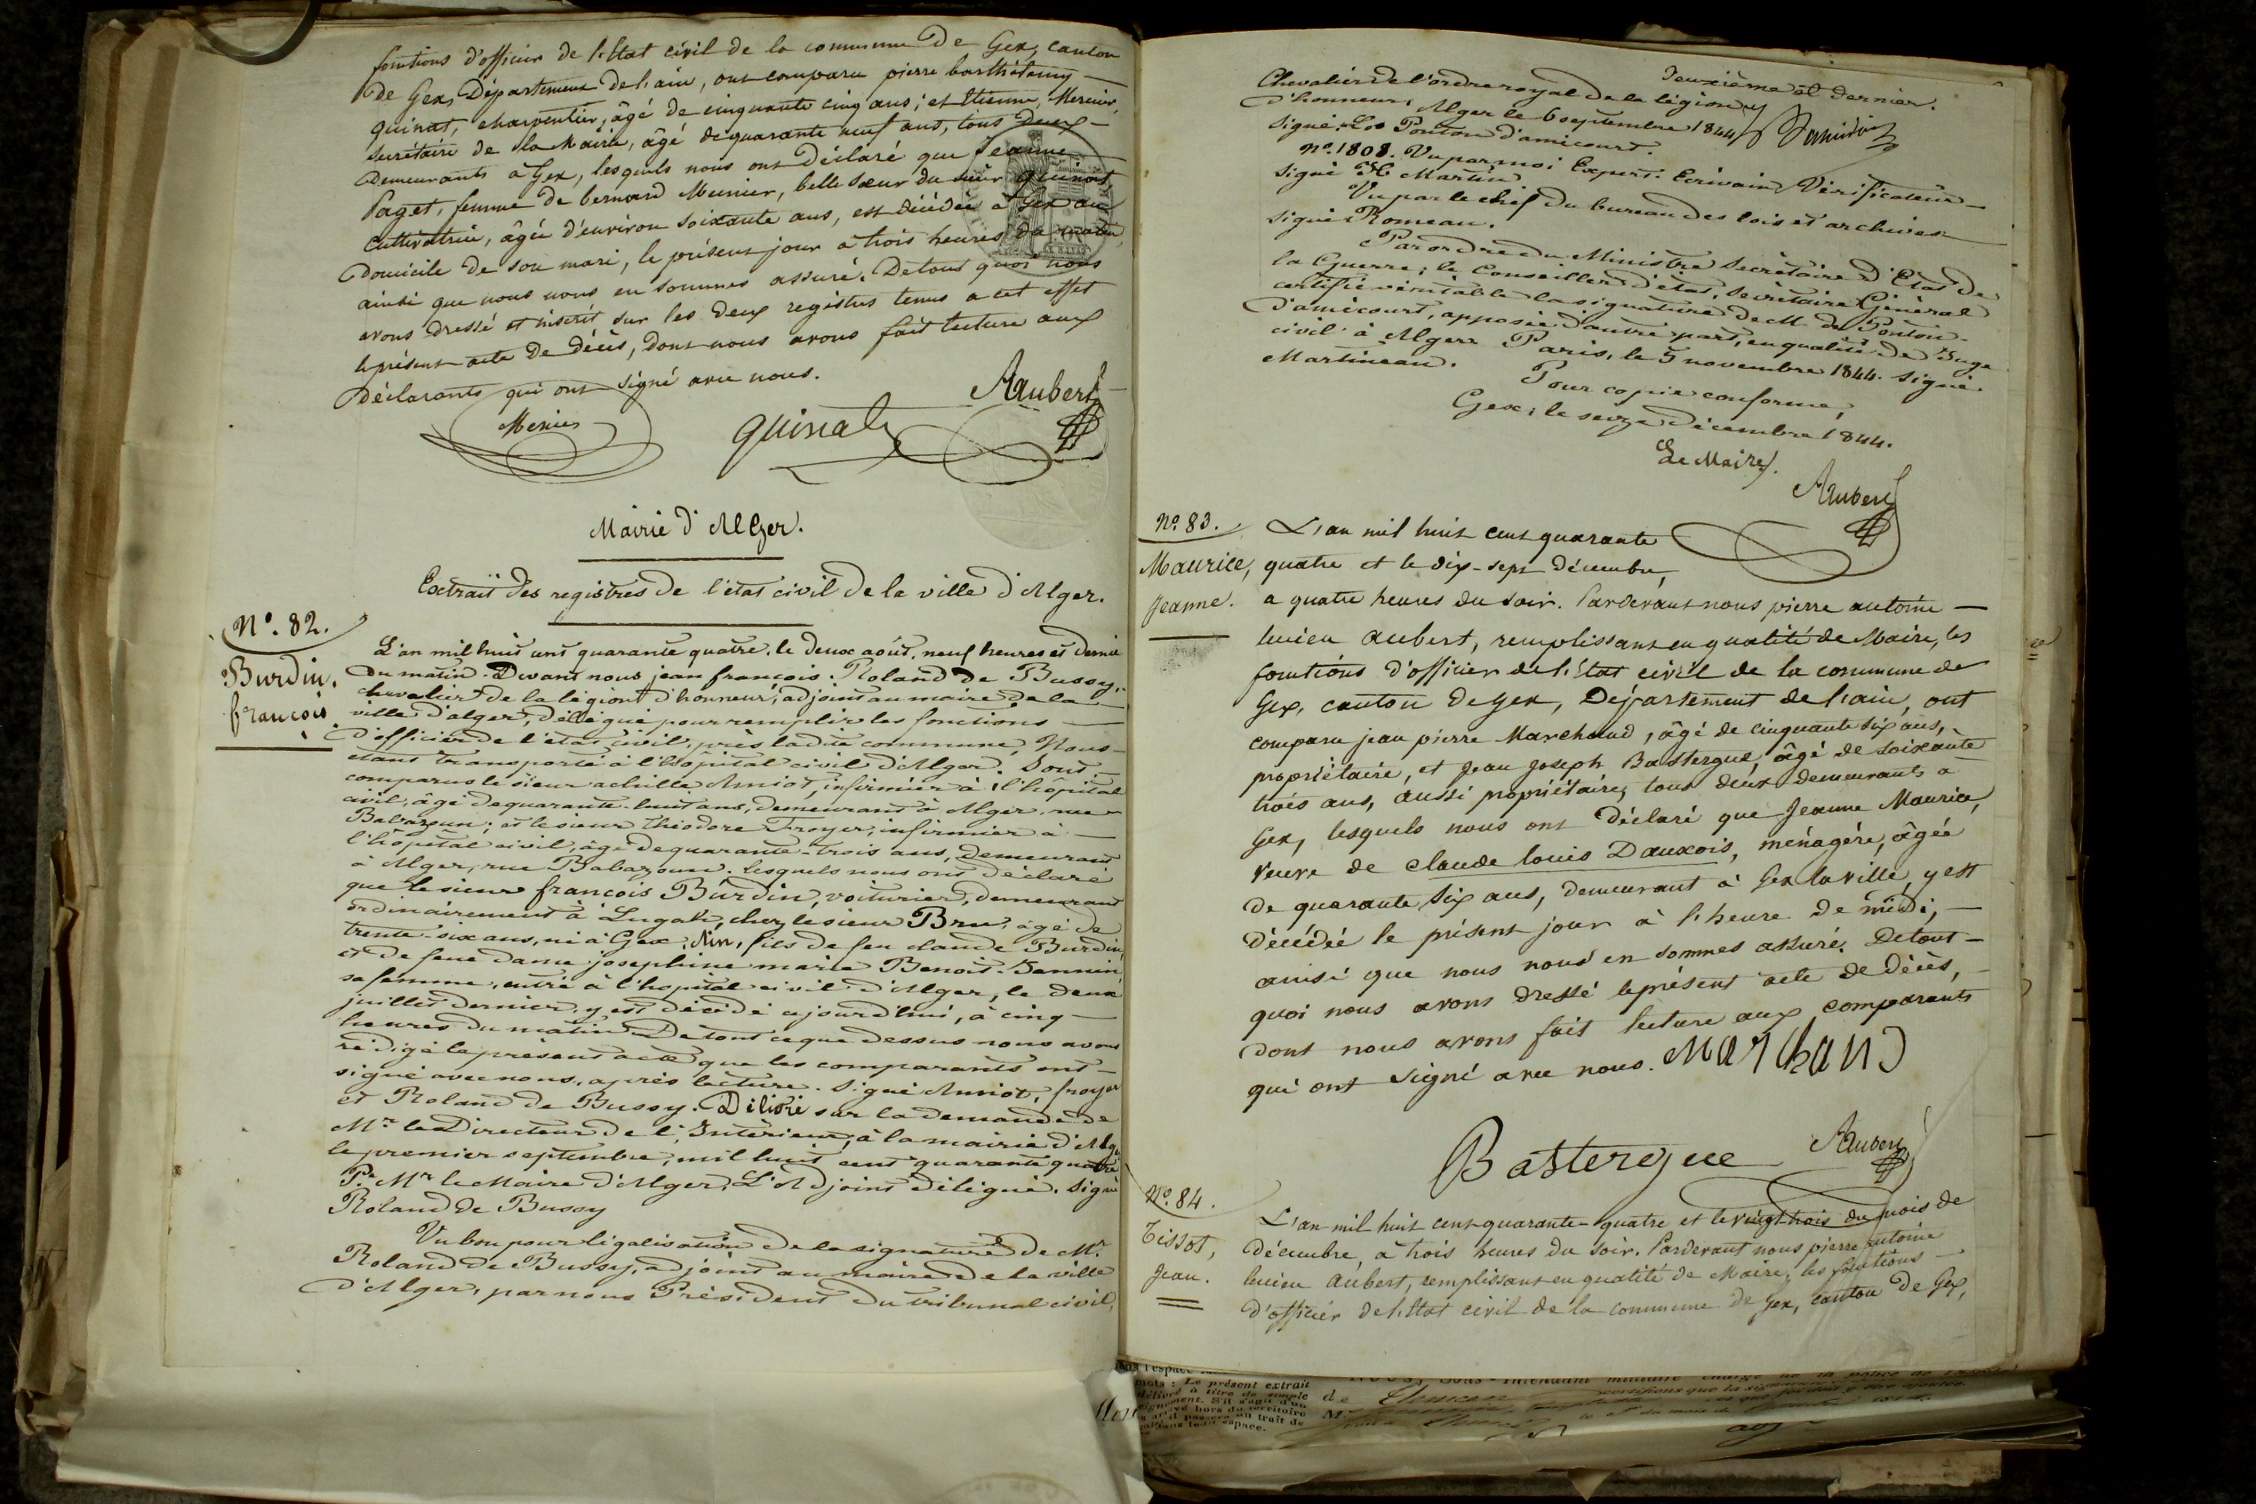 fonctions d'officier de l'état civil de la commune de Gex, canton
de Gex, Département de l'ain, ont comparu pierre barthélemy
quinat, charpentier, âgé de cinquante cinq ans; et Etienne, Mercier,
secrétaire de la Mairie, âgé de quarante neuf ans, tous deux
demeurants à Gex, lesquels nous ont déclaré que Jeanne
Paget, femme de bernard Meunier, belle sœur du sieur quinat,
cultivatrice, âgée d'environ soixante ans, est décédée à Gex au
domicile de son mari, le présent jour à trois heures du matin,
ainsi que nous nous en sommes assuré. De tout quoi nous
avons dressé et inscrit sur les deux registres tenus a cet effet
le présent acte de décès, dont nous avons fait lecture aux
déclarants qui ont signé avec nous.
Aubert
quinat
Mairie d'Alger.
Extrait des registres de l'état civil de la ville d'Alger.
N°. 82.
Burdin.
françois.
L'an mil huit cent quarante quatre, le deux août, neuf heures et demie
du matin. Devant nous jean françois. Roland de Bussy,
chevalier de la légion d'honneur, adjoint au maire de la
ville d'alger, délégué pour remplir les fonctions
d'officier de l'état civil, près ladite commune, Nous
étant transporté à l'hôpital civil d'Alger. Sont
comparus le sieur achille Amiot, infirmier à l'hôpital
civil, âgé de quarante-huit ans, demeurant à Alger, rue
Babazoun; et le sieur théodore Froyer, infirmier à
l'hôpital civil, âgé de quarante-trois ans, demeurant
à Alger, rue Babazoun. Lesquels nous ont déclaré
que le sieur françois Burdin, voiturier, demeurant
ordinairement à Lugah, chez le sieur Bru, âgé de
trente-six ans, né à Gex, Ain, fils de feu claude Burdin
et de feue dame josephine marie Benoit-Jannin
sa femme, entré à l'hopital civil d'Alger, le deux
juillet dernier, y est décédé aujourd'hui, à cinq
heures du matin. De tout ce que dessus nous avons
rédigé le présent acte que les comparants ont
signé avec nous, après lecture. Signé Amiot, froyer
et Roland de Bussy. Délivré sur la demande de
Mr. le Directeur de l'Intérieur, à la mairie d'Alger
le premier septembre, mil huit cent quarante quatre
Pr. Mr le Maire d'Alger, L'Adjoint délégué. Signé
Roland de Bussy
Vu bon pour légalisation de la signature de Mr.
Roland de Bussy, adjoint au maire de la ville
d'Alger, par nous Président du tribunal civil,
Deuxième et dernier.
Chevalier de l'ordre royal de la légion
d'honneur, Alger le 6 septembre 1844
Signé: Ponton d'amicourt.
N°. 1808. Vu par moi Expert. Ecrivain Vérificateur
Signé Martin
Vu par le chef du bureau des lois et archives
Signé Romeau.
Par ordre du Ministre Secrétaire d'Etat de
la Guerre; le Conseiller d'état, Secrétaire Général
certifie véritable la signature de M. de Ponton-
d'amicourt, apposée d'autre part, en qualité de Juge
civil à Alger Paris, le 5 novembre 1844. signé
Martineau.
Pour copie conforme,
Gex, le seize décembre 1844.
Le Maire.
Aubert
N°. 83.
Maurice,
Jeanne.
L'an mil huit cent quarante
quatre et le dix-sept décembre,
a quatre heures du soir. Pardevant nous pierre antoine
lucien aubert, remplissant en qualité de Maire, les
fonctions d'officier de l'état civil de la commune de
Gex, canton de gex, Département de l'ain, ont
comparu jean pierre Marchand, âgé de cinquante six ans,
propriétaire, et Jean Joseph Bastergue, âgé de soixante
trois ans, aussi propriétaire, tous deux demeurants à
Gex, lesquels nous ont déclaré que Jeanne Maurice,
veuve de claude louis Dauxois, ménagère, âgée
de quarante six ans, demeurant à Gex la ville, y est
décédée le présent jour à l'heure de midi,
ainsi que nous nous en sommes assuré. De tout
quoi nous avons dressé le présent acte de décès,
dont nous avons fait lecture aux comparants
qui ont signé avec nous. MarChanD
Bastergue Aubert
N°. 84.
Tissot,
Jean.
L'an mil huit cent quarante-quatre et le vingt trois du mois de
décembre, à trois heures du soir. Pardevant nous pierre antoine
lucien Aubert, remplissant en qualité de Maire, les fonctions
d'officier de l'état civil de la commune de gex, canton de Gex,
mots : Le présent extrait
délivré à titre de simple
hors du territoire
un trait de
espace.